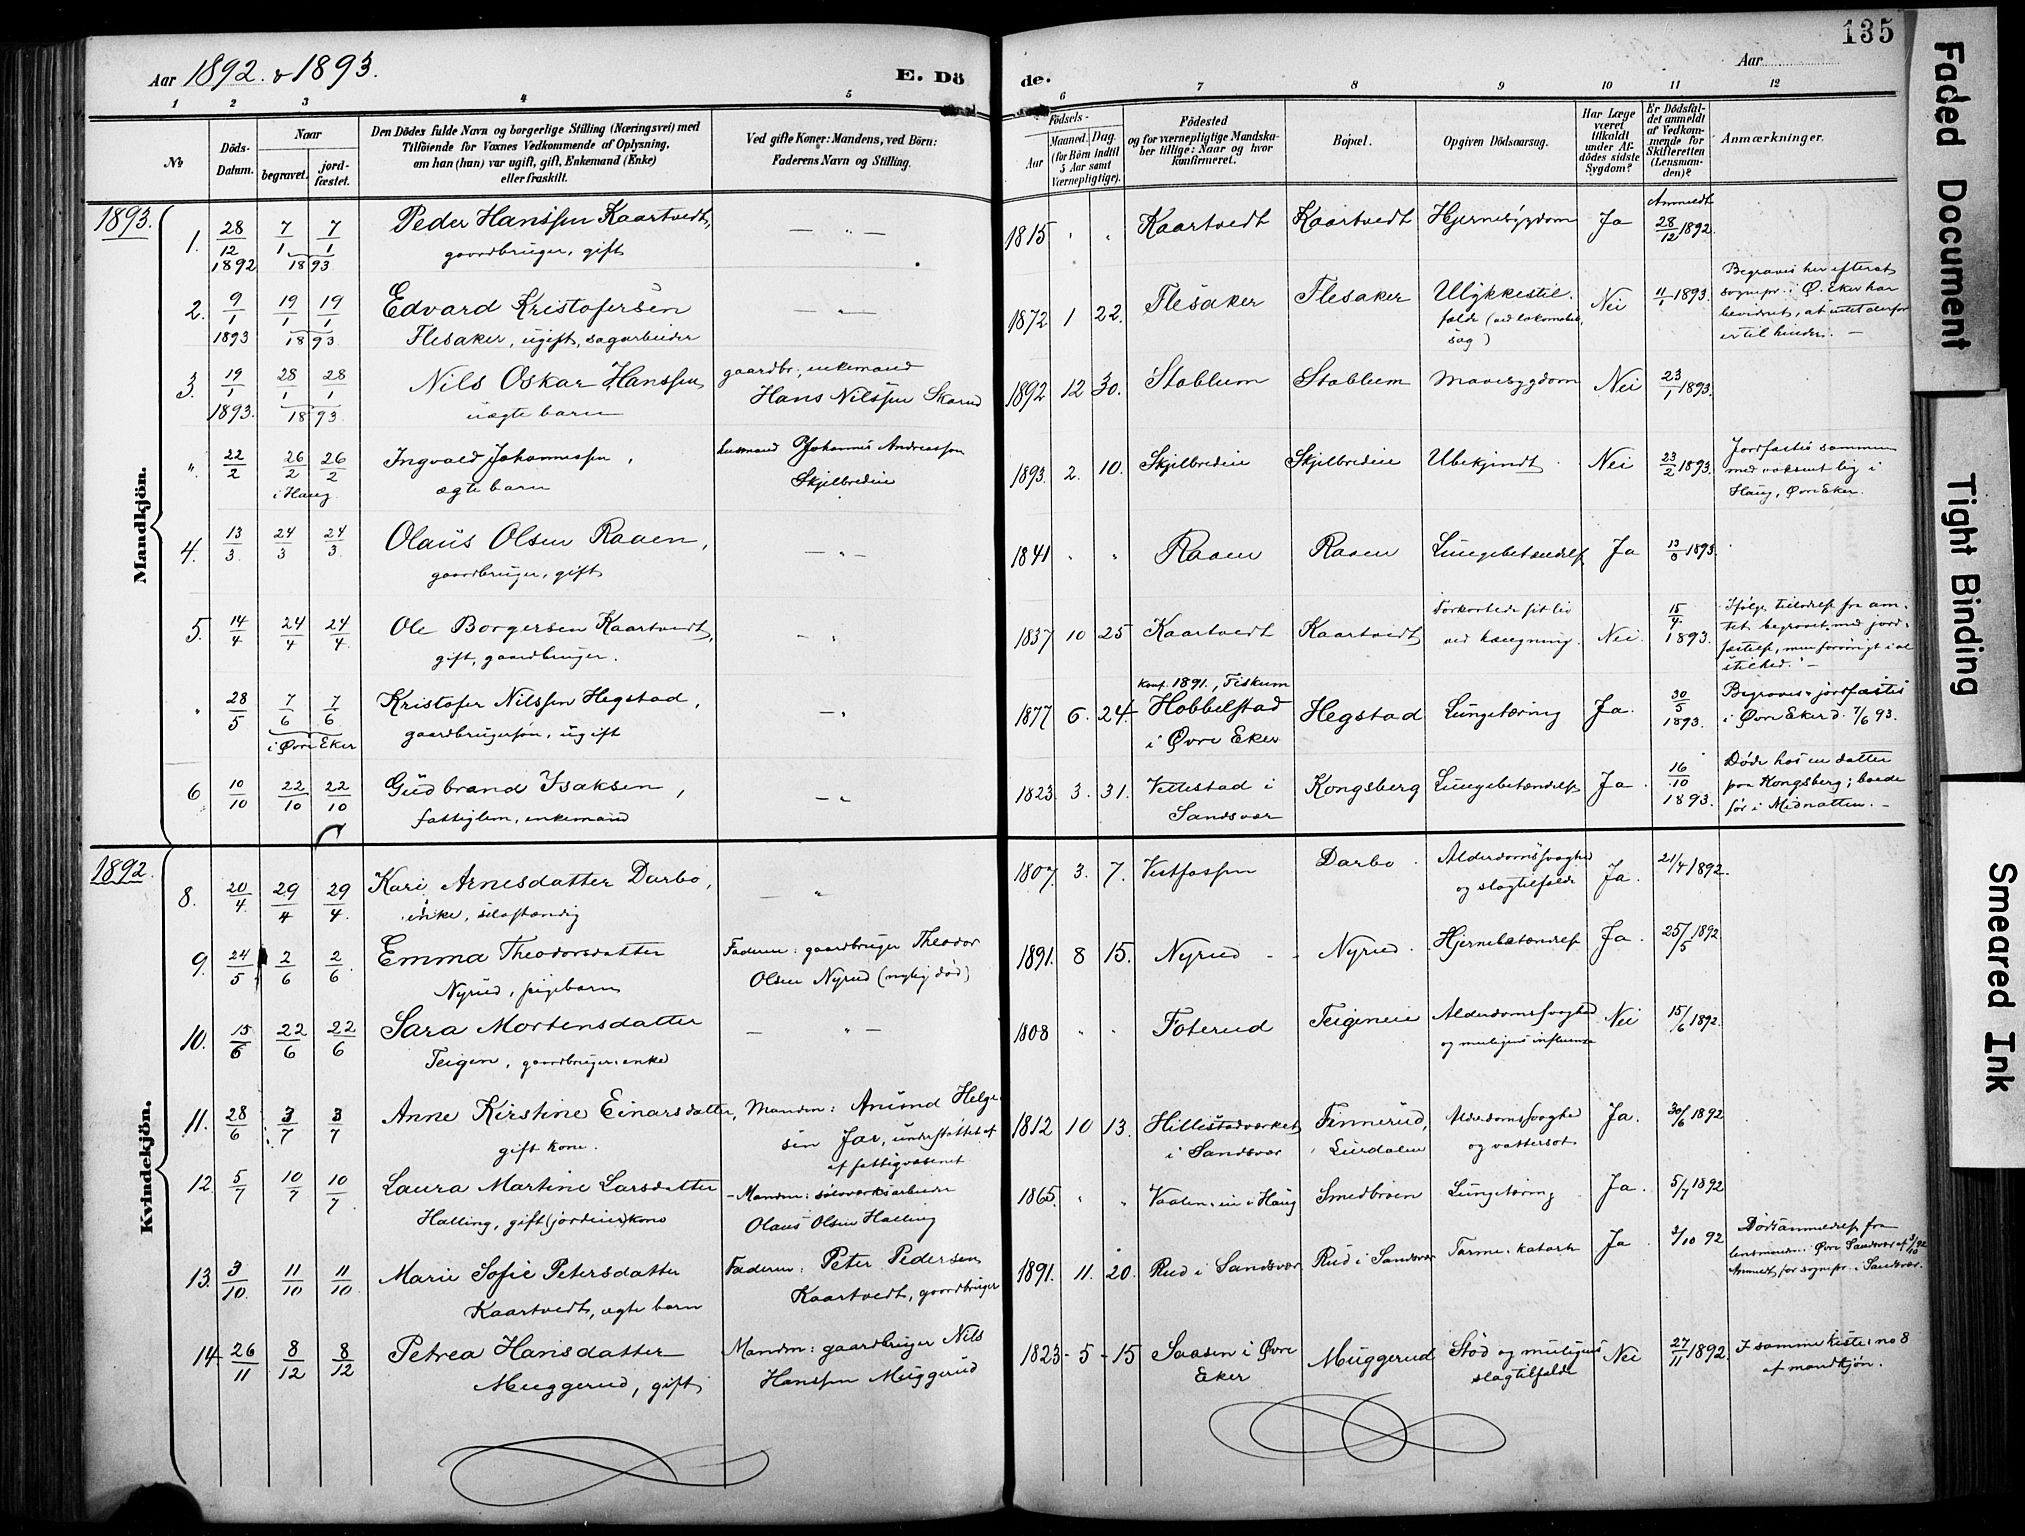 135
Aar 1892 & 1893.
E. Dö de.
Aar
1 2 3 4 5 6 7 8 9 10 11 12
No
Döds-Datum.
Naar
begravet.
jordfæstet.
Den Dödes fulde Navn og borgerlige Stilling (Næringsvei) med
Tilföiende for Voxnes Vedkommende af Oplysning,
om han (hun) var ugift, gift, Enkemand (Enke)
eller fraskilt.
Ved gifte Koner: Mandens, ved Börn:
Faderens Navn og Stilling.
Födsels-
Aar
Maaned. Dag.
(for Börn indtil
5 Aar samt
Værnepligtige).
Födested
og for værnepligtige Mandskaber
tillige: Naar og hvor
konfirmeret.
Bopæl.
Opgiven Dödsaarsag.
Har Læge
været
tilkaldt
under Afdödes
sidste
Sygdom?
Er Dödsfaldet
anmeldt
af Vedkommende
for
Skifteretten
(Lensmanden)?
Anmærkninger.
Mandkjön.
1893.
1. 28/12 1892 7/1 7/1 1893 Peder Hanssen Kaartvedt, gaardbruger, gift — „ — 1815 „ „ Kaartvedt Kaartvedt Hjernesygdom Ja Anmeldt 28/12 1892.
2. 9/1 1893 19/1 19/1 1893 Edvard Kristofersen Flesaker, ugift, sagarbeider — „ — 1872 1 22. Flesaker Flesaker Ulykkestilfælde (ved lokomobilsag) Nei 11/1 1893. Begraves her efterat sognepr. i Ø. Eker har bevidnet, at intet derfor er til hinder. —
3. 19/1 1893. 28/1 28/1 1893 Nils Oskar Hanssen uægte barn gaardbr., enkemand Hans Nilssen Skarud 1892 12 30. Stablum Stablum Mavesygdom Nei 23/1 1893.
„ 22/2 26/2 26/2 i Haug Ingvald Johannessen, ægte barn husmand Johannes Andreassen Skjelbredeie 1893. 2. 10. Skjelbredeie Skjelbredeie Ubekjendt. Nei 23/2 1893. Jordfæstes sammen med voksent lig i Haug, Øvre Eker.
4. 13/3. 24/3 24/3. Olaus Olsen Raaen, gaardbruger, gift — „ — 1841 „ „ Raaen Raaen Lungebetændelse Ja 13/3 1893.
5. 14/4 24/4 24/4. Ole Borgersen Kaartvedt, gift, gaardbruger. — „ 1837 10 25 Kaartvedt Kaartvedt Forkortede sit liv ved hængning. Nei. 15/4. 1893. Ifølge tilladelse fra amtet begravet med jordfæstelse, men forøvrigt i al stilhed. —
„ 28/5 7/6 7/6 i Øvre Eker Kristofer Nilssen Hegstad, gaardbrugersøn, ugift — „ 1877 6. 24. Konf. 1891., Fiskum Hobbelstad i Øvre Eker Hegstad Lungetæring Ja. 30/5 1893. Begraves & jordfæstes i Øvre Eker d. 7/6 93.
6 10/10 22/10 22/10 Gudbrand Isaksen, fattiglem, enkemand — „ 1823. 3. 31. Vettestad i Sandsvær Kongsberg Lungebetændelse Ja. 16/10 1893. Døde hos en datter paa Kongsberg; boede før i Midnatten. —
Kvindekjön.
1892.
8. 20/4. 29/4 29/4. Kari Arnesdatter Darbo, enke, selvstændig — „ 1807. 3. 7. Vestfossen Darbo. Alderdomssvaghed og slagtilfælde Ja. 21/4 1892.
9. 24/5 2/6 2/6. Emma Theodorsdatter Nyrud, pigebarn Faderen: gaardbruger Theodor Olsen Nyrud (nylig død) 1891. 8 15. Nyrud Nyrud. Hjernebetændelse Ja. 25/5 1892
10. 15/6 22/6 22/6 Sara Mortensdatter Teigen, gaardbrugerenke — „ — 1808 „ „ Foterud Teigeneie Alderdomssvaghed og muligens influensa Nei 15/6 1892.
11. 28/6 3/7 3/7 Anne Kirstine Einarsdatter, gift kone. Manden: Anund Helgesen Jar, understøttet af af fattigvæsenet 1812 10 13. Hillestadværket i Sandsvær Finnerud, Lurdalen Alderdomssvaghed og vattersot Ja. 30/6 1892
12. 5/7 10/7 10/7. Laura Martine Larsdatter Halling, gift (jordeier) kone — Manden: sølvverksarbeider Olaus Olsen Halling 1865. „ „ Vaalen-eie i Haug Smedbroen Lungetæring Ja. 5/7 1892
13. 3/10. 11/10 11/10 Marie Sofie Petersdatter Kaartvedt, ægte barn Faderen: Peter Pedersen Kaartvedt, gaardbruger 1891. 11. 20. Rud i Sandsvær Rud i Sandsvær Tarme-katarh Ja 3/10 92 Dødsanmeldelse fra lensmanden i Øvre Sandsvær af 3/10 92 Anmeldt for sognepr. i Sandsvær.
14 26/11 8/12 8/12 Petrea Hansdatter Muggerud, gift Manden: gaardbruger Nils Hanssen Muggerud 1823 - 5 - 15 Saasen i Øvre Eker Muggerud Stød og muligens slagtilfælde Nei 27/11 1892. I samme kiste: no 8 af mandkjøn.
Faded Document
Tight Binding
Smeared Ink